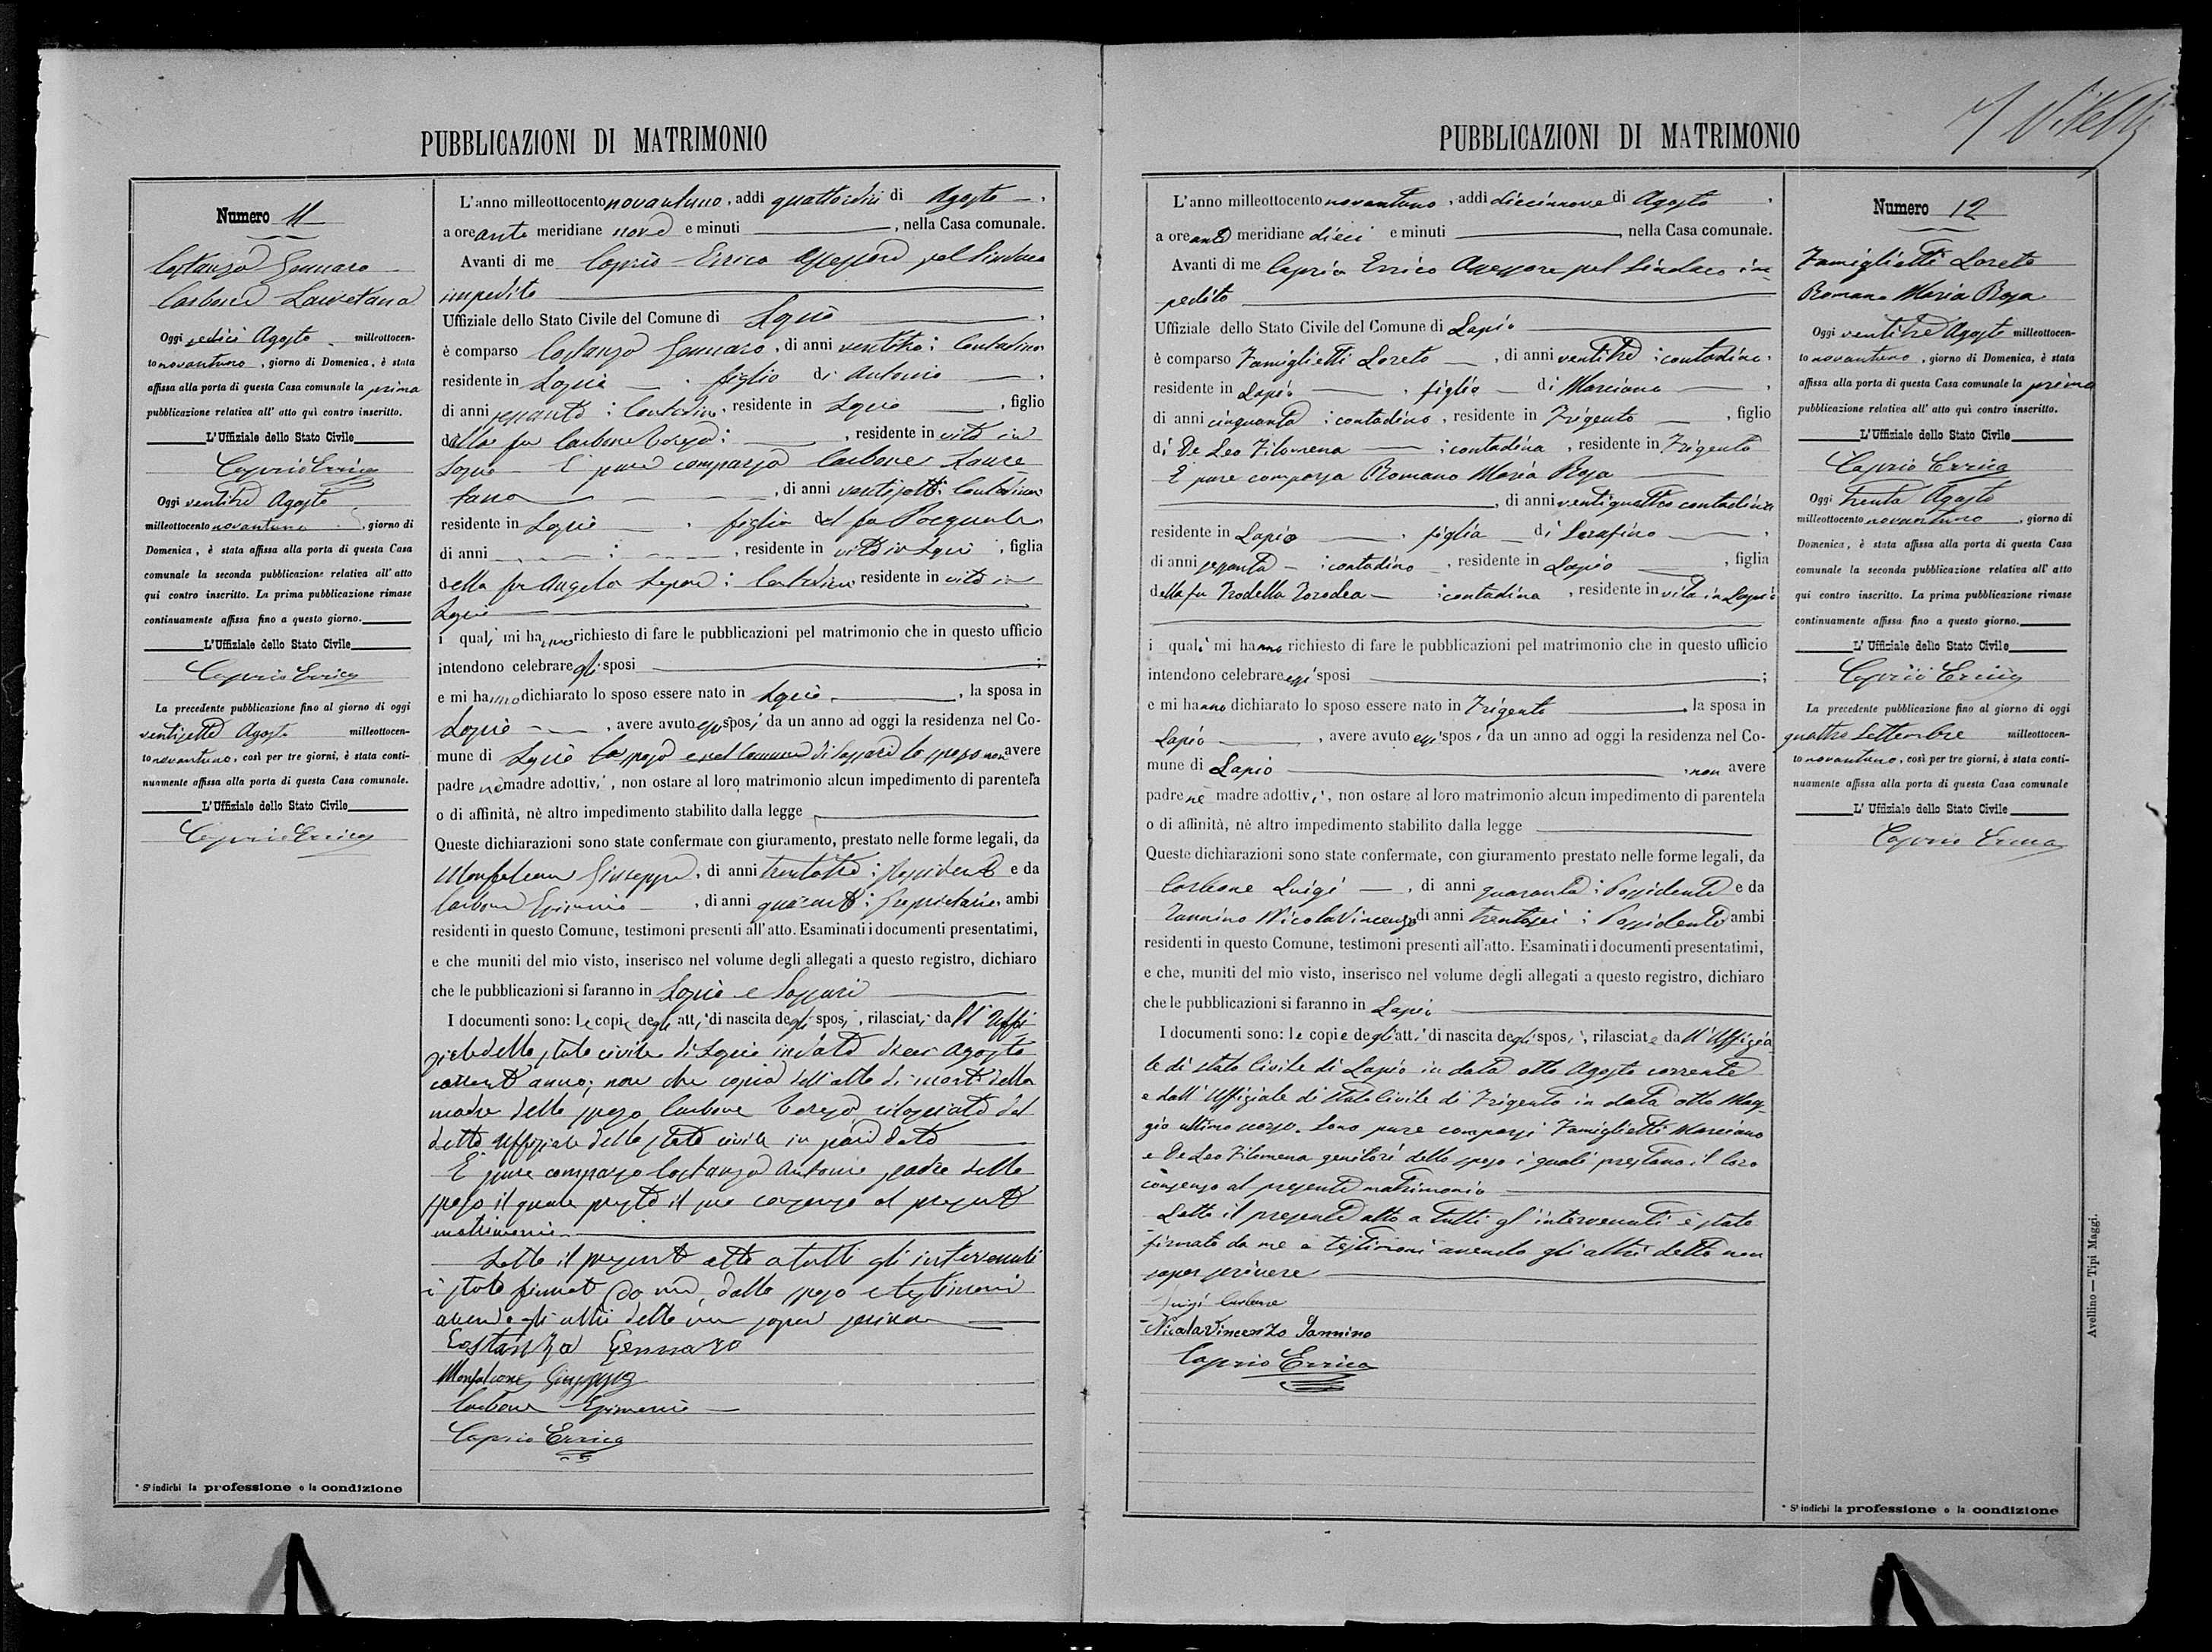 PUBBLICAZIONI DI MATRIMONIO
Numero 11
Costanzo Gennaro
Carbone Lauretana
Oggi sedici Agosto milleottocen-
to novantuno, giorno di Domenica, è stata
affissa alla porta di questa Casa comunale la prima
pubblicazione relativa all' atto quì contro inscritto.
L'Uffiziale dello Stato Civile
Caprio Errico
Oggi ventitre Agosto
milleottocento novantuno, giorno di
Domenica, è stata affissa alla porta di questa Casa
comunale la seconda pubblicazione relativa all' atto
qui contro inscritto. La prima pubblicazione rimase
continuamente affissa fino a questo giorno.
L'Uffiziale dello Stato Civile
Caprio Errico
La precedente pubblicazione fino al giorno di oggi
ventisette Agosto milleottocen-
to novantuno, così per tre giorni, è stata conti-
nuamente affissa alla porta di questa Casa comunale.
L'Uffiziale dello Stato Civile
Caprio Errico
* S'indichi la professione o la condizione
L'anno milleottocento novantuno, addì quattordici di Agosto
a ore anti meridiane nove e minuti , nella Casa comunale.
Avanti di me Caprio Errico Assessore pel Sindaco
impedito
Uffiziale dello Stato Civile del Comune di Lapio
è comparso Costanzo Gennaro, di anni ventitre; Contadino
residente in Lapio figlio di Antonio
di anni sessanta; Contadino, residente in Lapio, figlio
della fu Carbone Teresa; , residente in vita in
Lapio È pure comparsa Carbone Laure
tana , di anni ventisette; Contadina
residente in Lapio figlia del fu Pasquale
di anni ; , residente in vita in Lapio, figlia
della fu Angela ; Contadina residente in vita in
Lapio
i quali mi hanno richiesto di fare le pubblicazioni pel matrimonio che in questo ufficio
intendono celebrare gli sposi ;
e mi hanno dichiarato lo sposo essere nato in Lapio , la sposa in
Lapio , avere avuto essi sposi da un anno ad oggi la residenza nel Co-
mune di Lapio la sposa e nel Comune di Sassari lo sposo non avere
padre nè madre adottivi, non ostare al loro matrimonio alcun impedimento di parentela
o di affinità, nè altro impedimento stabilito dalla legge
Queste dichiarazioni sono state confermate con giuramento, prestato nelle forme legali, da
Monfalcone Giuseppe, di anni ; Possidente e da
Carbone Epimenio , di anni quaranta; proprietario, ambi
residenti in questo Comune, testimoni presenti all'atto. Esaminati i documenti presentatimi,
e che muniti del mio visto, inserisco nel volume degli allegati a questo registro, dichiaro
che le pubblicazioni si faranno in Lapio e Sassari
I documenti sono: le copie degli atti di nascita degli sposi, rilasciati dall'Uffi
ziale dello stato civile di Lapio in data Agosto
corrente anno; non che copia dell'atto di morte della
madre dello sposo Carbone Teresa rilasciata dal
detto Uffiziale dello stato civile in pari data
È pure comparso Costanzo Antonio padre dello
sposo il quale presta il suo consenso al presente
matrimonio
Letto il presente atto a tutti gli intervenuti
è stato firmato da me, dallo sposo e testimoni
avendo gli altri detto non saper scrivere
Costanzo Gennaro
Monfalcone Giuseppe
Carbone Epimenio
Caprio Errico
PUBBLICAZIONI DI MATRIMONIO
L'anno milleottocento novantuno, addì diecinnove di Agosto ,
a ore anti meridiane dieci e minuti , nella Casa comunale.
Avanti di me Caprio Errico Assessore pel Sindaco im
pedito
Uffiziale dello Stato Civile del Comune di Lapio
è comparso Famiglietti Loreto , di anni ventitre; contadino,
residente in Lapio , figlio di Marciano ,
di anni cinquanta; contadino, residente in Frigento , figlio
di De Leo Filomena ; contadina, residente in Frigento
È pure comparsa Romano Maria Rosa
, di anni ventiquattro contadina
residente in Lapio , figlia di Serafino ,
di anni sessanta ; contadino , residente in Lapio , figlia
della fu Trodella Torodea ; contadina , residente in vita in Lapio
i quali mi hanno richiesto di fare le pubblicazioni pel matrimonio che in questo ufficio
intendono celebrare essi sposi ;
e mi hanno dichiarato lo sposo essere nato in Frigento , la sposa in
Lapio , avere avuto essi sposi da un anno ad oggi la residenza nel Co-
mune di Lapio , non avere
padre nè madre adottivi, non ostare al loro matrimonio alcun impedimento di parentela
o di affinità, nè altro impedimento stabilito dalla legge
Queste dichiarazioni sono state confermate, con giuramento prestato nelle forme legali, da
Carbone Luigi , di anni quaranta; Possidente e da
Iannino Nicola Vincenzo di anni trentasei; Possidente ambi
residenti in questo Comune, testimoni presenti all'atto. Esaminati i documenti presentatimi,
e che, muniti del mio visto, inserisco nel volume degli allegati a questo registro, dichiaro
che le pubblicazioni si faranno in Lapio
I documenti sono: le copie degli atti di nascita degli sposi, rilasciate dall'Uffizia
le di stato Civile di Lapio in data otto Agosto corrente
e dall'Uffiziale di Stato Civile di Frigento in data otto Mag
gio ultimo scorso. Sono pure comparsi Famiglietti Marciano
e De Leo Filomena genitori dello sposo i quali prestano il loro
consenso al presente matrimonio
Letto il presente atto a tutti gl'intervenuti è stato
firmato da me e testimoni avendo gli altri detto non
saper scrivere
Luigi Carbone
Nicola Vincenzo Iannino
Caprio Errico
Numero 12
Famiglietti Loreto
Romano Maria Rosa
Oggi ventitre Agosto milleottocen-
to novantuno, giorno di Domenica, è stata
affissa alla porta di questa Casa comunale la prima
pubblicazione relativa all' atto quì contro inscritto.
L'Uffiziale dello Stato Civile
Caprio Errico
Oggi trenta Agosto
milleottocento novantuno, giorno di
Domenica, è stata affissa alla porta di questa Casa
comunale la seconda pubblicazione relativa all' atto
qui contro inscritto. La prima pubblicazione rimase
continuamente affissa fino a questo giorno.
L' Uffiziale dello Stato Civile
Caprio Errico
La precedente pubblicazione fino al giorno di oggi
quattro Settembre milleottocen-
to novantuno, così per tre giorni, è stata conti-
nuamente affissa alla porta di questa Casa comunale
L' Uffiziale dello Stato Civile
Caprio Errico
* S'indichi la professione o la condizione
Avellino — Tipi Maggi.